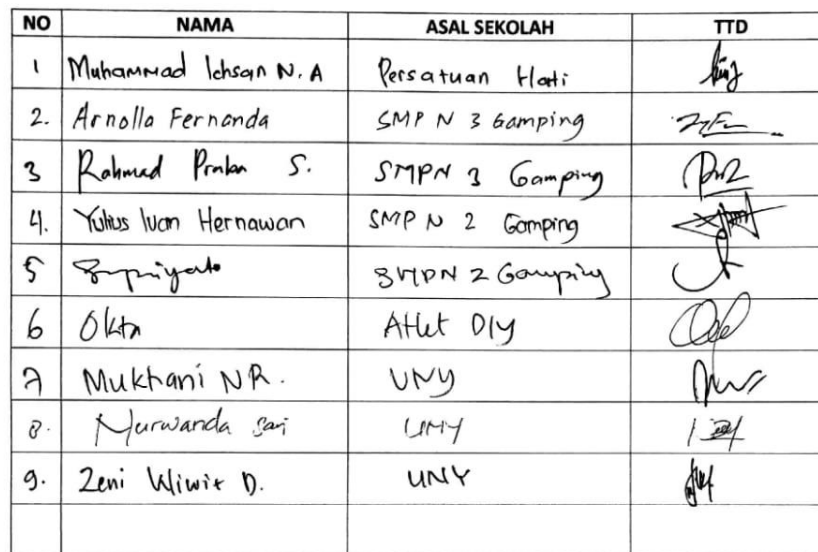 NO NAMA ASAL SEKOLAH TTD
1 Muhammad Ichsan N. A Persatuan Hati
2. Arnolla Fernanda SMP N 3 Gamping
3 Rahmad S. SMPN 3 Gamping
4. Yulius Ivan Hernawan SMP N 2 Gamping
5 Supriyato SMPN 2 Gamping
6 Okta Atlet DIY
7 Mukhani NR. UNY
8. Nurwanda Sari UNY
9. Zeni Wiwit D. UNY